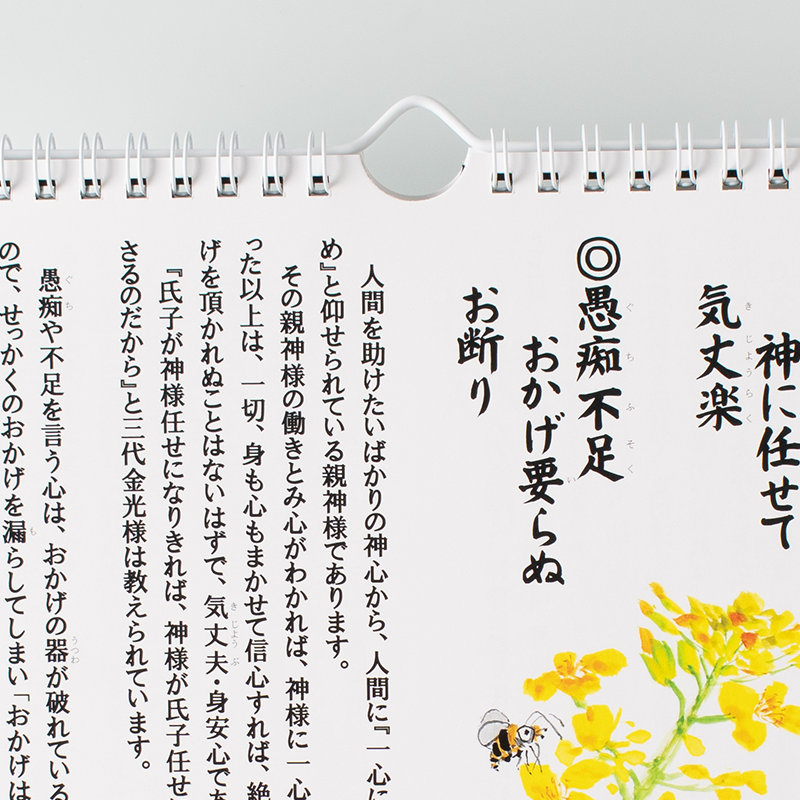 神に任せて
気丈楽
きじようらく
◎愚痴不足
ぐちふそく
おかげ要らぬ
い
お断り
人間を助けたいばかりの神心から、人間に『一心に
め』と仰せられている親神様であります。
その親神様の働きとみ心がわかれば、神様に一心
った以上は、一切、身も心もまかせて信心すれば、絶
げを頂かれぬことはないはずで、気丈夫・身安心であ
きじようぶ
『氏子が神様任せになりきれば、神様が氏子任せ
さるのだから』と三代金光様は教えられています。
愚痴や不足を言う心は、おかげの器が破れている
ぐち
うつわ
ので、せっかくのおかげを漏らしてしまい「おかげは
も